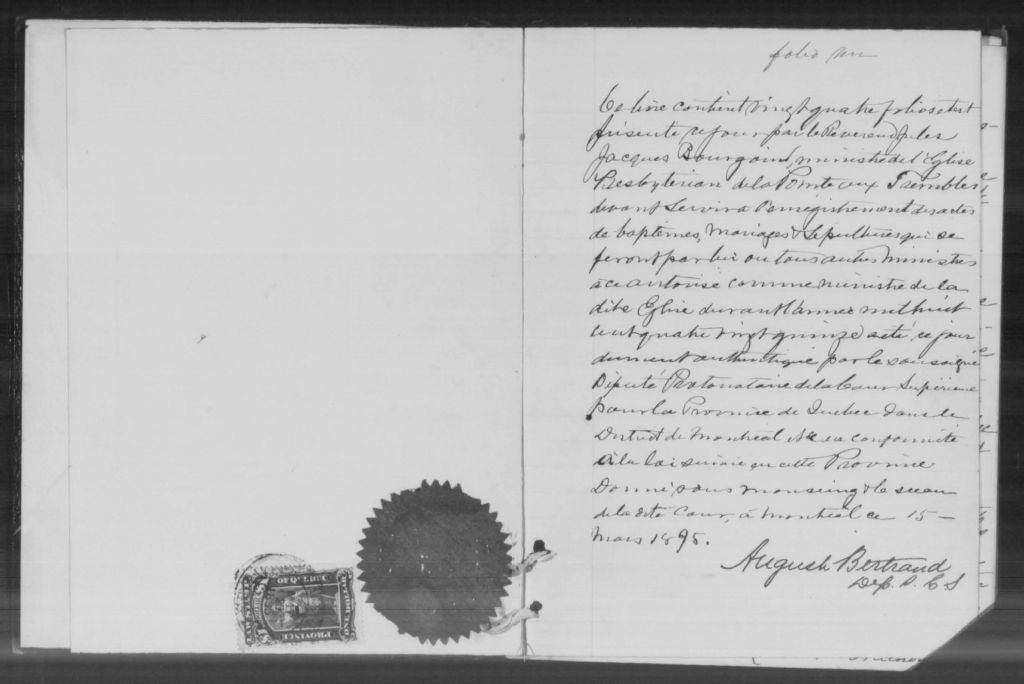 folio un
Ce livre contient vingt quatre folios et est
présenté ce jour par le Reverend Jules
Jacques Bourgoin, ministre de l'Eglise
Presbyterian de la Pointe aux Trembles
devant servir a l'enregistrement des actes
de baptêmes, Mariages & Sepultures qui se
feront par lui ou tous autres ministres
à ce autorisé comme ministre de la
dite Eglise durant l'année mil huit
cent quatre vingt quinze a été ce jour
dument authentiqué par le soussigné
Député Protonotaire de la Cour Supérieure
pour la Province de Quebec dans le
District de Montréal et ce en conformité
à la loi suivie en cette Province
Donné sous mon seing & le sceau
de la dite Cour, à Montréal ce 15 –
Mars 1895.
August Bertrand
Dep. P. C S
PROVINCE
ONE DOLLAR
LAW STAMP